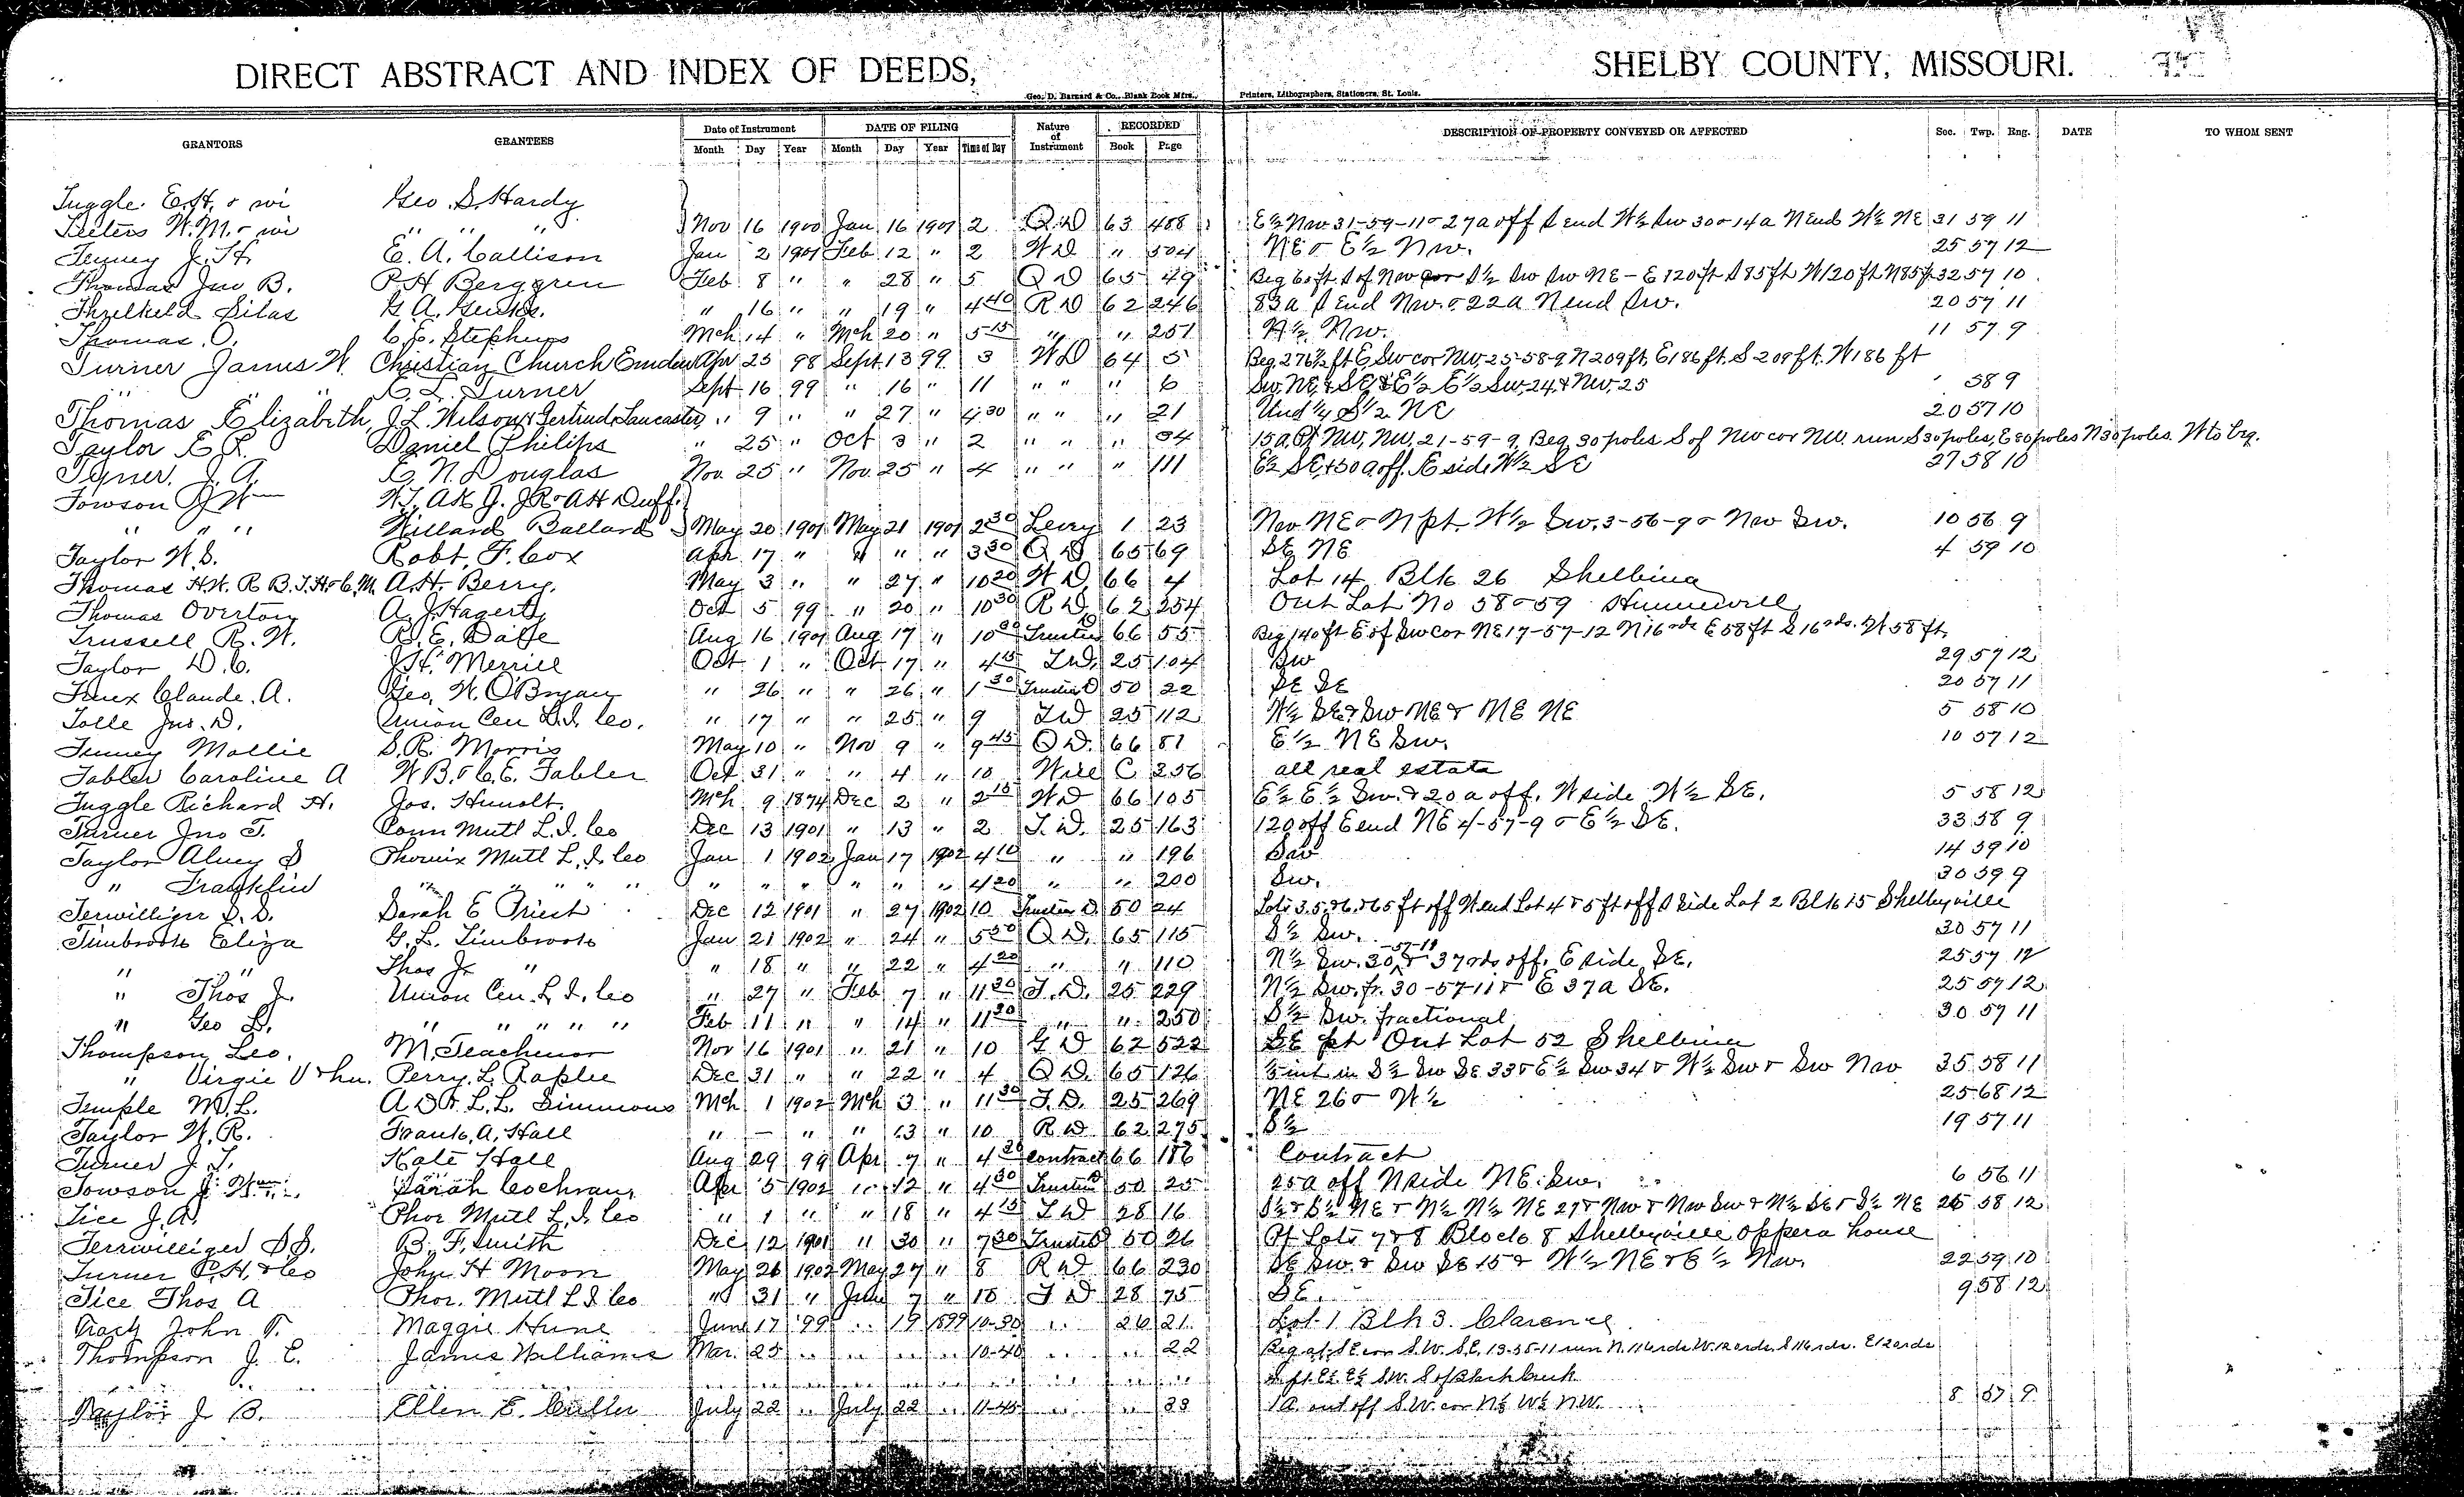 DIRECT ABSTRACT AND INDEX OF DEEDS, SHELBY COUNTY, MISSOURI.
Geo. D. Barnard & Co., Blank Book Mfrs., Printers, Lithographers, Stationers, St. Louis.
GRANTORS GRANTEES Date of Instrument DATE OF FILING Nature of Instrument RECORDED DESCRIPTION OF PROPERTY CONVEYED OR AFFECTED Sec. Twp. Rng. DATE TO WHOM SENT
Month Day Year Month Day Year Time of Day Book Page
Tuggle. E.H. & wi Geo. S. Hardy
Teeters W.M. & wi " " " Nov 16 1900 Jan 16 1901 2 Q.D 63 488 E½ Nw 31-59-11 & 27a off S end W½ Sw 30 & 14a N end W½ NE 31 59 11
Tenney J. H. E. A. Callison Jan 2 1901 Feb 12 " 2 W D " 504 NE & E½ Nw. 25 57 12
Thomas Jno B. P.H. Berggren Feb 8 " " 28 " 5 Q D 65 49 Beg 60ft S of Nw cor S½ Sw Sw NE - E 120ft S 85ft W 120ft N 85ft 32 57 10
Threlkeld Silas " 16 " " 19 " 4 40 R D 62 246 83a S End Nw. & 22a N end Sw. 20 57 11
Thomas. O. C. E. Stephens Mch 14 " Mch 20 " 5 15 " " 251 N½ Nw. 11 57 9
Turner James W. Christian Church Emden Apr 25 98 Sept. 13 99 3 WD 64 5 Beg. 276½ ft E Sw cor NW, 25-58-9 N 209 ft. E 186 ft. S 209 ft. W 186 ft
" " C. L. Turner Sept 16 99 " 16 " 11 " " " 6 Sw, NE, & SE & E½ E½ Sw, 24, & NW, 25 58 9
Thomas Elizabeth, J. L. Wilson & Gertrude Lancaster " 9 " " 27 " 4 30 " " " 21 Und ¼ S½ NE 20 57 10
Taylor E R. Daniel Philips " 25 " Oct 3 " 2 " " " 34 15 a, Pt NW, NW, 21-59-9, Beg. 30 poles S of NW cor NW. run S 30 poles, E 80 poles N 30 poles. W to bg.
Tyner. J. A. C. N. Douglas Nov. 25 " Nov. 25 " 4 " " " 111 E½ SE, & 30 a off. E side W½ SE 27 58 10
Towson J W W.T. A K J. J R & A H Duff.
" " " Willard Ballard May 20 1901 May 21 1901 2 30 Levy 1 23 Nw NE & N pt. W½ Sw. 3-56-9 & Nw Sw. 10 56 9
Taylor W. S. Robt. F. Cox Apr. 17 " " " " 3 30 Q D 65 69 SE NE 4 59 10
Thomas H.W. R B. J. H. & C. M. A.H. Berry. May 3 " " 27 " 10 20 W D 66 4 Lot 14. Blk 26 Shelbina
Thomas Overton A. J. Hagerty Oct 5 99 " 20 " 10 30 R D 62 254 Out Lot No 58 & 59 Hunnewell
Trussell R. W. R. E. Dale Aug 16 1901 Aug 17 " 10 30 Trustee D 66 55 Beg 140 ft E of Sw cor NE 17-57-12 N 16 rds E 58 ft S 16 rds. W 58 ft.
Taylor D. C. J. H. Merrill Oct 1 " Oct 17 " 4 15 T.D. 25 104 Sw 29 57 12
Truex Claude. A. Geo. W. O'Bryan " 26 " " 26 " 1 30 Trustee D 50 22 SE SE 20 57 11
Tolle Jno. D. Union Cen L. I. Co. " 17 " " 25 " 9 T D 25 112 W½ SE & Sw NE & NE NE 5 58 10
Tenney Mollie S. R. Morris May 10 " Nov 9 " 9 45 Q D. 66 81 E½ NE Sw. 10 57 12
Tabler Caroline A W B. & C. E. Tabler Oct 31 " " 4 " 10 Will C 256 all real estate
Tuggle Richard H. Jos. Hunolt. Mch 9 1874 Dec 2 " 2 15 W D 66 105 E½ E½ Sw. & 20 a off. W side W½ SE. 5 58 12
Turner Jno T. Conn Mutl L. I. Co Dec 13 1901 " 13 " 2 T. D. 25 163 120 off E end NE 4-57-9 & E½ SE. 33 58 9
Taylor Alney S Phoenix Mutl L. I. Co Jan 1 1902 Jan 17 1902 4 10 " " 196 Sw 14 59 10
" Franklin " " " " " " " " " " 4 20 " " 200 Sw. 30 59 9
Terwilliger S. S. Sarah E Priest Dec 12 1901 " 27 1902 10 Trustee D. 50 24 Lots 3, 5, & 6, & 65 ft off W end Lot 4 & 5 ft off S side Lot 2 Blk 15 Shelbyville
Timbrook Eliza G. L. Timbrook Jan 21 1902 " 24 " 5 30 Q D. 65 115 S½ Sw. 30 57 11
" " Thos Jr " " 18 " " 22 " 4 20 " " 110 N½ Sw. 30 -57-11 & 37 rds off. E side SE. 25 57 12
" Thos J. Union Cen L. I. Co " 27 " Feb 7 " 11 30 T. D. 25 229 N½ Sw. fr. 30-57-11 & E 37a SE. 25 57 12
" Geo L. " " " " " Feb 11 " " 14 " 11 20 " " 250 S½ Sw. fractional 30 57 11
Thompson Leo. M. Teachenor Nov 16 1901 " 21 " 10 G D 62 522 SE pt Out Lot 52 Shelbina
" Virgie V & hu. Perry L Raplee Dec 31 " " 22 " 4 Q D. 65 126 int in S½ Sw SE 33 & E½ Sw 34 & W½ Sw & Sw Nw 35 58 11
Temple M. L. A D & L. L. Simmons Mch 1 1902 Mch 3 " 11 30 T. D. 25 269 NE 26 & W½ 25 68 12
Taylor W. R. Frank. A. Hall " — " " 13 " 10 R D 62 275 S½ 19 57 11
Turner J. T. Kate Hall Aug 29 99 Apr 7 " 4 30 contract 66 186 Contract
Towson J. Wm Sarah Cochran Apr 5 1902 " 12 " 4 30 Trustee D 50 25 25 a off N side NE. Sw. 6 56 11
Tice J. A. Phoe Mutl L. I. Co " 1 " " 18 " 4 15 T D 28 16 S½ & S½ NE & N½ N½ NE 27 & Nw & Nw Sw & N½ SE & S½ NE 26 58 12
Terrwilliger S S. B. F. Smith Dec 12 1901 " 30 " 7 30 Trustee D 50 26 Pt Lots 7 & 8 Block 8 Shelbyville Oppera house
Turner P. H. & Co John H Moon May 26 1902 May 27 " 8 R D 66 230 SE Sw. & Sw SE 15 & W½ NE & E½ Nw. 22 59 10
Tice Thos A Phoe. Mutl L I Co " 31 " 7 " 10 T D 28 75 SE. 9 58 12
Tracy John T. Maggie Hune June 17 '99 .. 19 1899 10-30 .. 26 21 Lot 1 Blk 3. Clarence
Thompson J. E. James Williams Mar. 25 .. .. .. .. 10-40 .. .. 22 Beg. at S E cor S.W. S.E. 13-58-11 run N. 116 rds W. 12 rds. S 116 rds. E 12 rds
& pt E½ E½ S.W. S of Black Creek
Taylor J B. Ellen E. Culler July 22 .. July 22 .. 11-45 .. .. 33 1a. out off S.W. cor N½ W½ N.W. 8 57 9